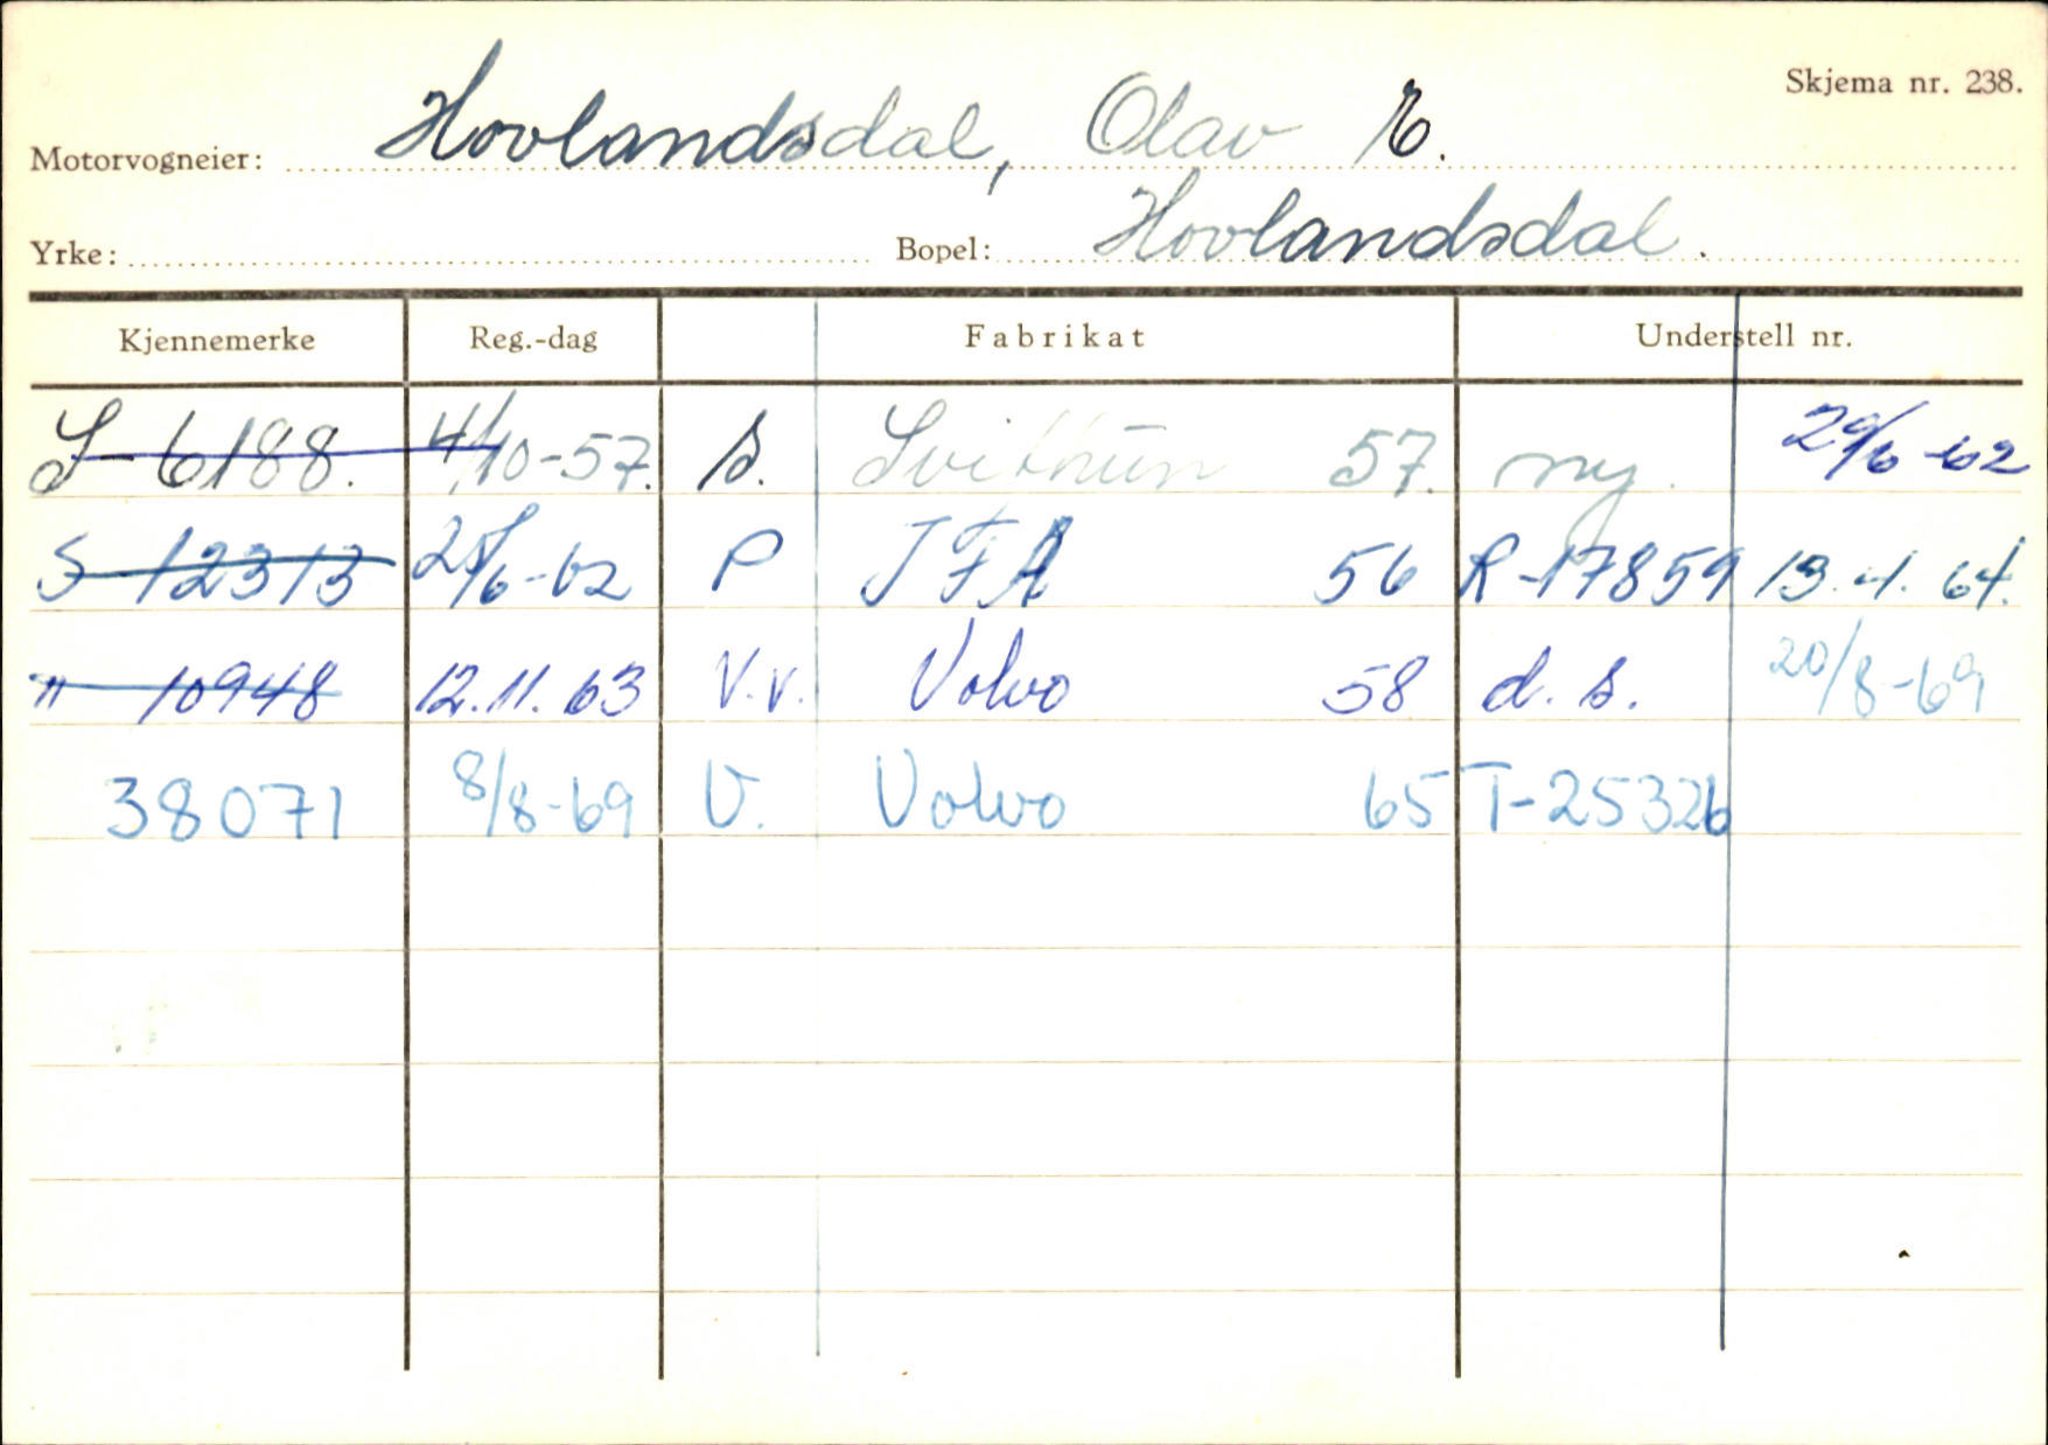 Skjema nr. 238.
Motorvogneier: Hovlandsdal, Olav E.
Yrke: Bopel: Hovlandsdal.
Kjennemerke Reg.-dag Fabrikat Understell nr.
S-6188. 4/10-57. s. Svithun 57. ny. 29/6-62
S-12313 25/6-62 P IFA 56 R-17859 13.4.64.
" 10948 12.11.63 V.v. Volvo 58 d.s. 20/8-69
38071 8/8-69 V. Volvo 65 T-25326